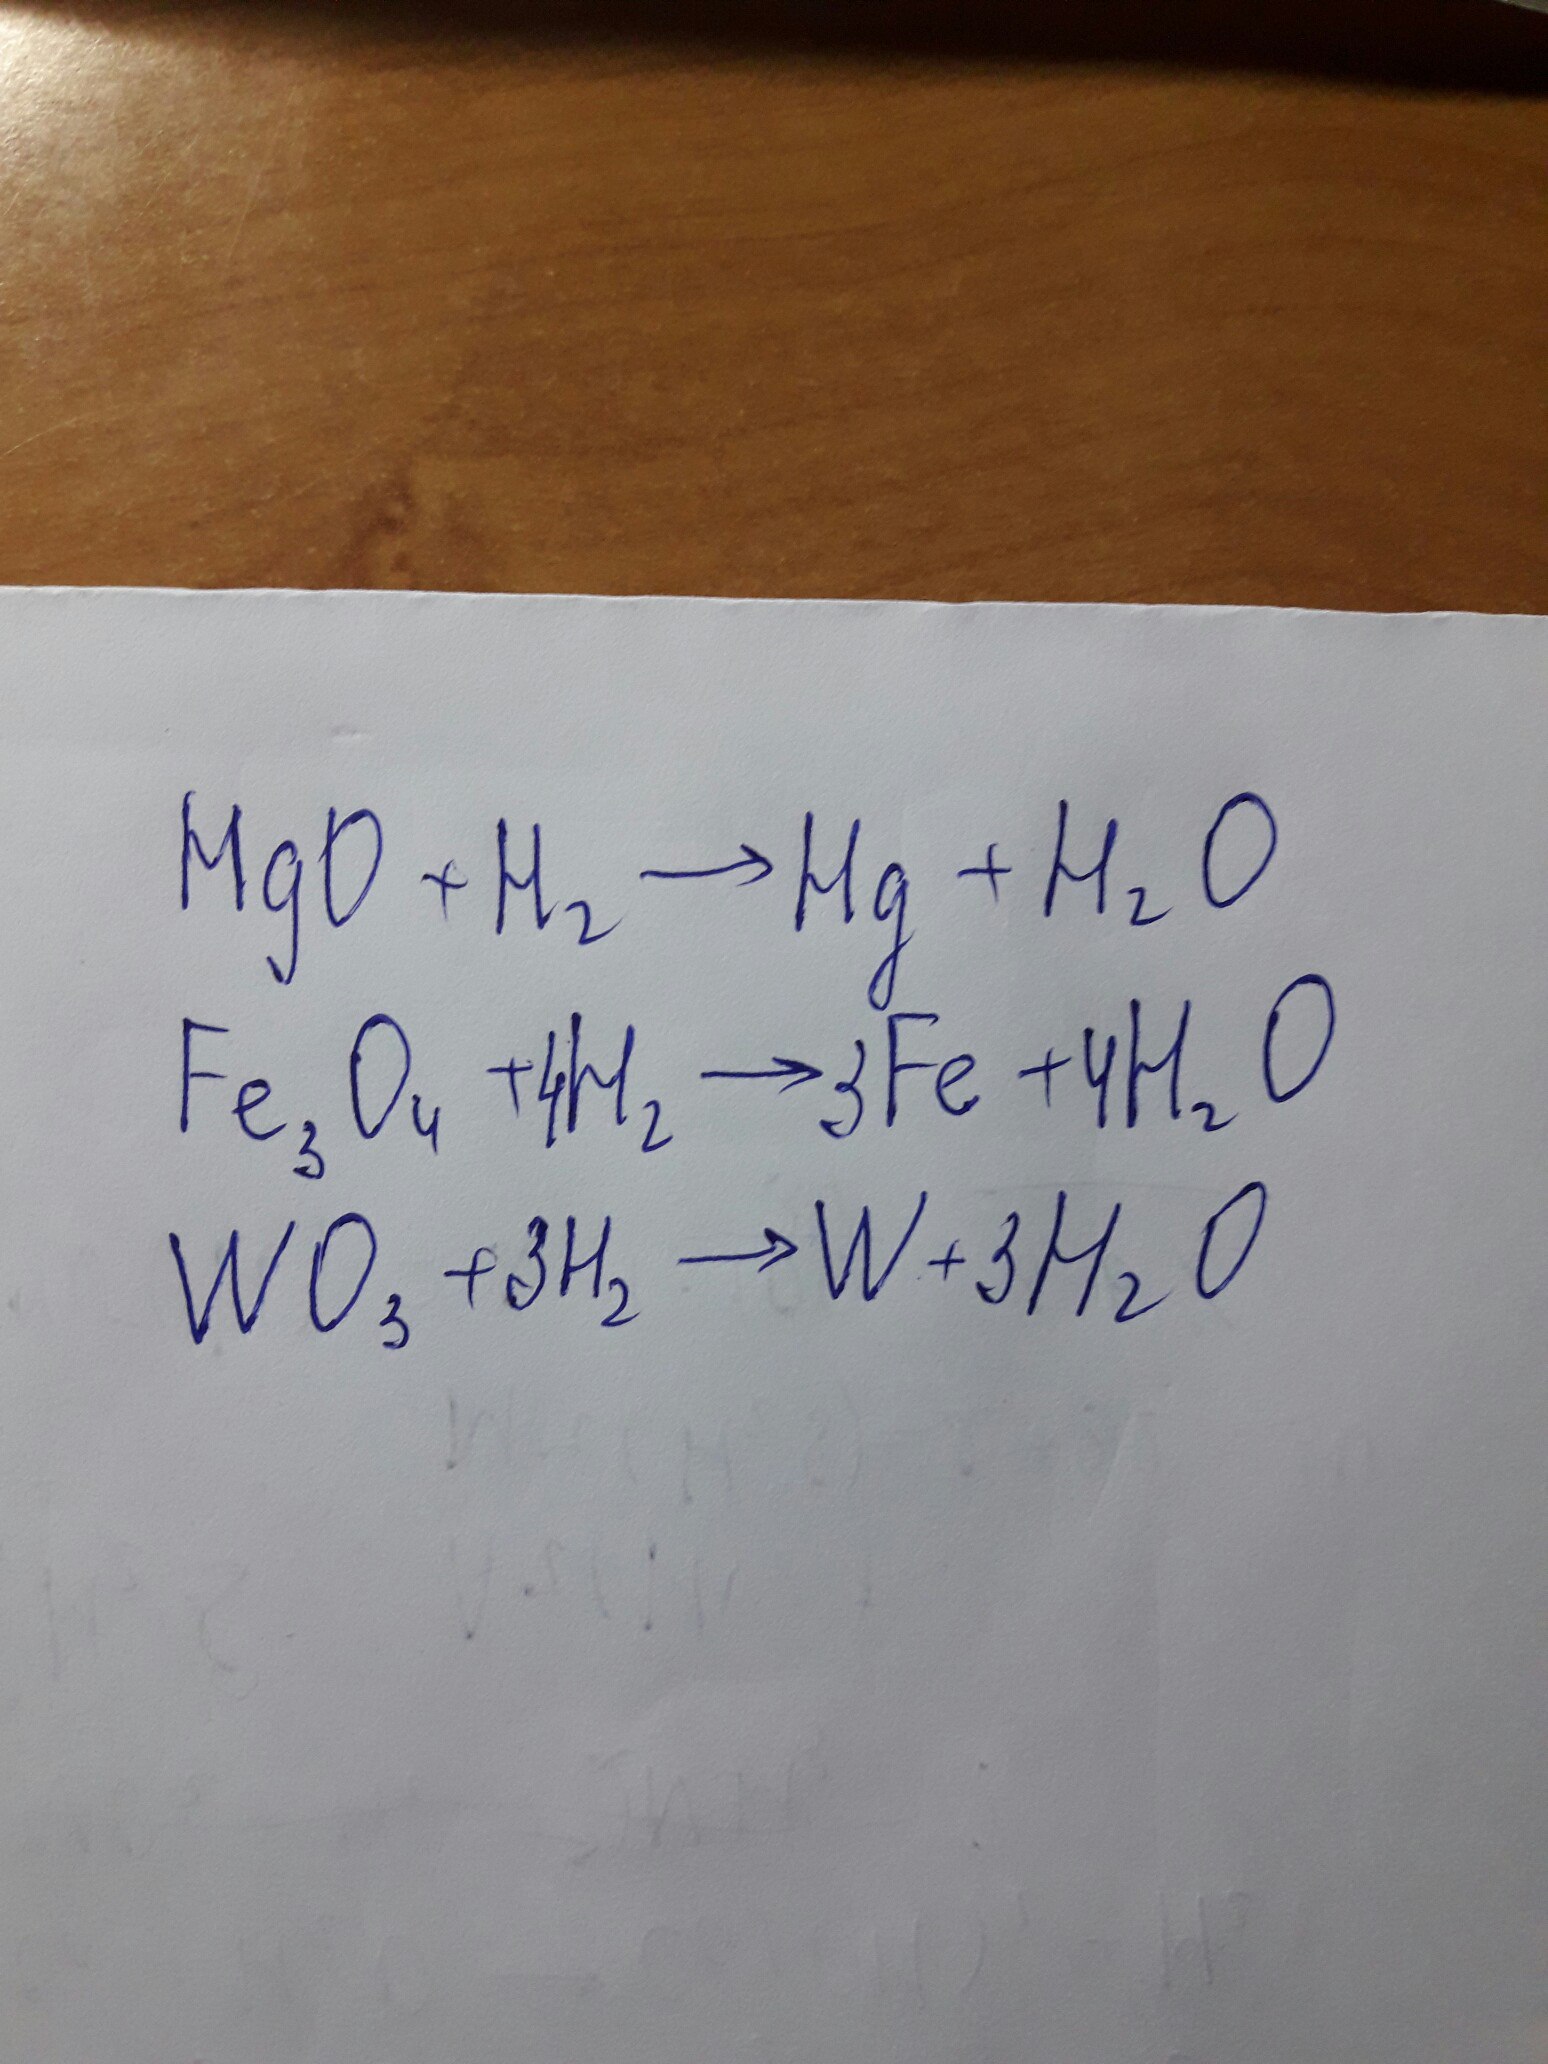 MgO + H₂ → Hg + H₂O
Fe₃O₄ + 4H₂ → 3Fe + 4H₂O
WO₃ + 3H₂ → W + 3H₂O